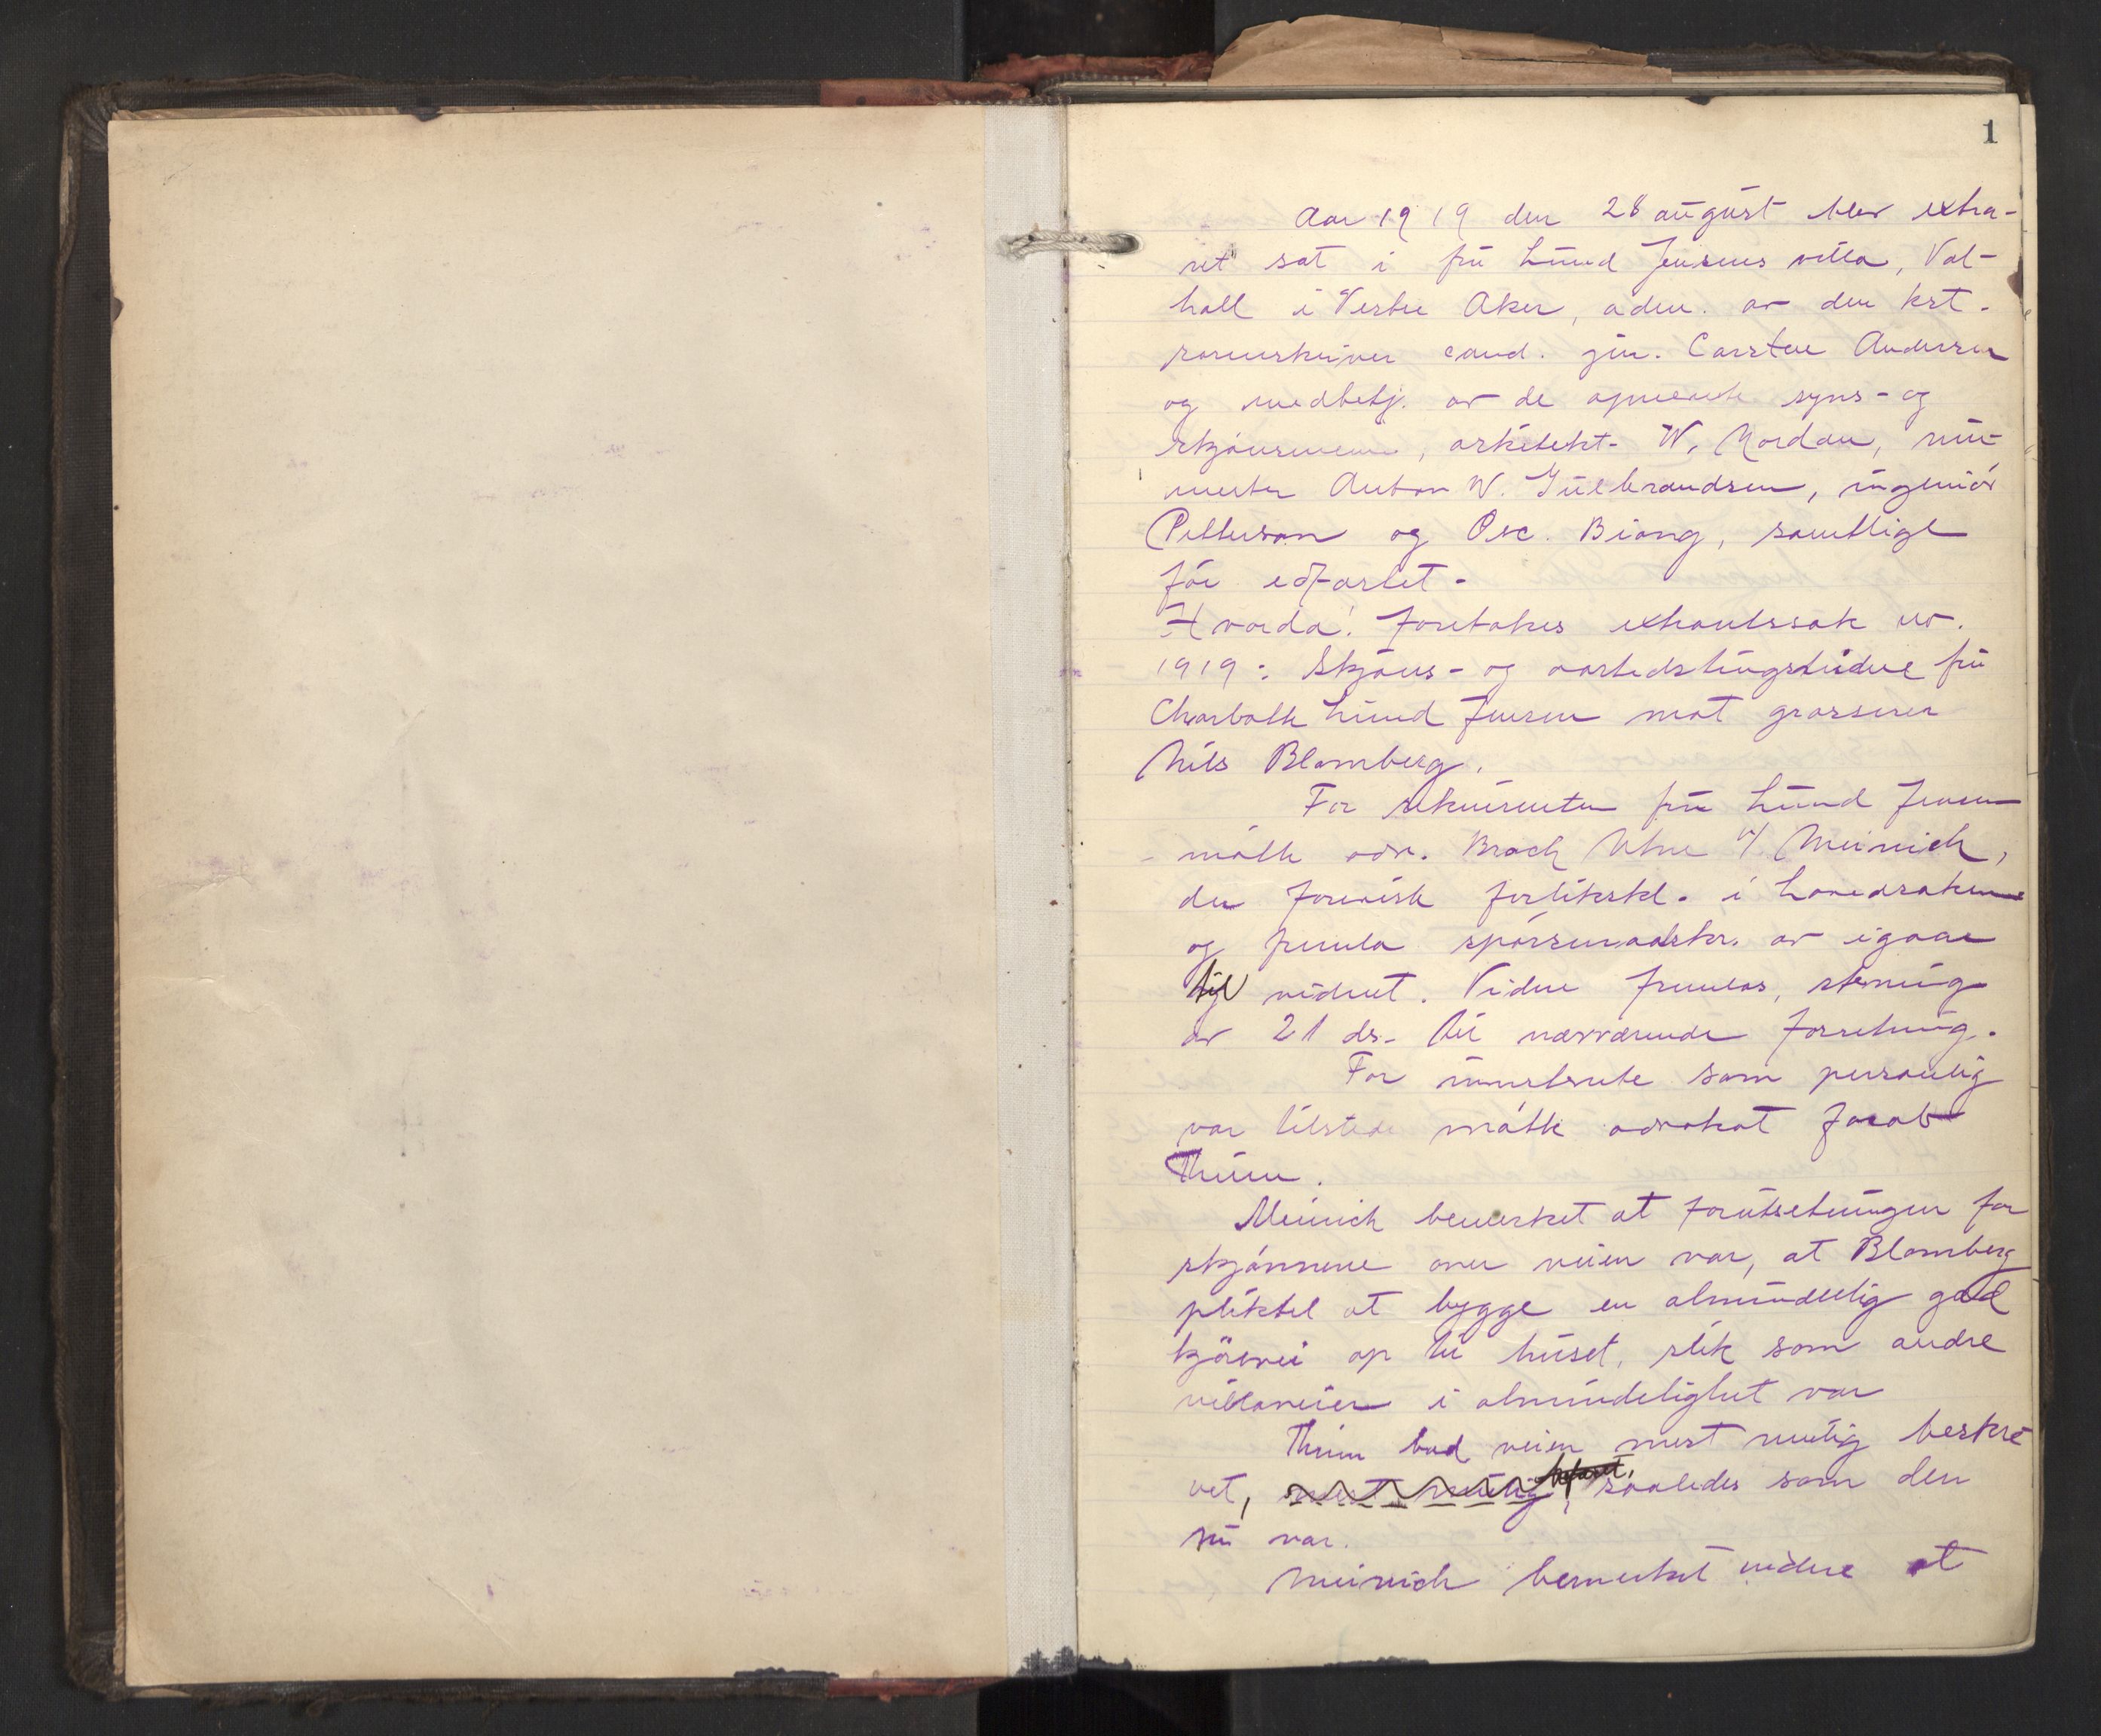 1
Aar 1919 den 28 august blev extra-
ret sat i fru Lund Jensens villa, Val-
hall i Vestre Aker, adm. av den kst.
sorenskriver cand. jur. Carsten Anderssen
og medbetj. av de opnevnte syns- og
skjønsmenn, arkitekt W. Nordan, mur-
mester Anton W. Gulbrandsen, ingeniør
Petterson og Osc. Biong, samtlige
før edfæstet.
Hvorda! foretokes extraretssak nr.
1919: Skjøns- og aastedstingsvidne fru
Charlotte Lund Jensen mot grosserer
Nils Blomberg.
For rekvirenten fru Lund Jensen
møtte adv. Brock Utne v/ Meinich,
der foreviste forlikskl. i hovedsaken
og fremla spørsmaalskr. av igaar
til vidnet. Videre fremlas, stevning
av 21 ds. til nærværende forretning.
For innstevnte som personlig
var tilstede møtte advokat Jacob
Thinn.
Meinich bemerket at forutsetningen for
skjønnene over veien var, at Blomberg
pliktet at bygge en almindelig god
kjörevei op til huset, slik som andre
villaveier i almindelighet var
Thinn bad veien mest mulig beskre-
vet, saaledes som den
nu var.
Meinich bemerket videre at